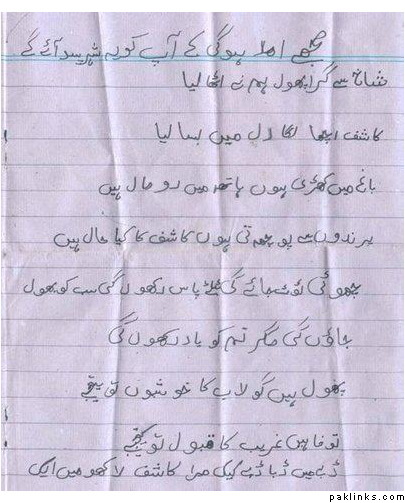 مجھے امید ہوگی کے آپ کو یہ شہر پسد آئے گے
شاخ سے گرا پھول ہم نے اٹھا لیا
کاشف اچھا لگا دل میں بسا لیا
باغ میں کھڑی ہوں ہاتھ میں رومال ہیں
پرندوں سے پوچھتی ہوں کاشف کا کیا حال ہیں
چھوٹی ٹوٹ جائے گی پاس رکھوں گی سب کو بھول
جاؤں گی مگر تم کو یاد رکھوں گی
پھول ہیں گولاب کا خوشبوں تو
توفا ہیں غریب کا قبول تو کیجیے
ڈبے میں ڈبا ڈبے میں کیک مرا کاشف لاکھو میں ایک
paklinks.com